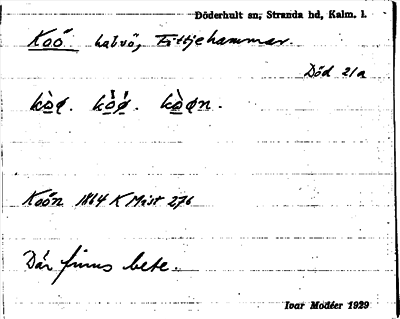 Döderhult sn, Stranda hd, Kalm. l.
Koö. halvö, Fittjehammar.
Död 21a
kòǫ. kǫ̀ǫ́. kòǫn.
Koön 1864 K Måst 276
Där finns bete.
Ivar Modéer 1929